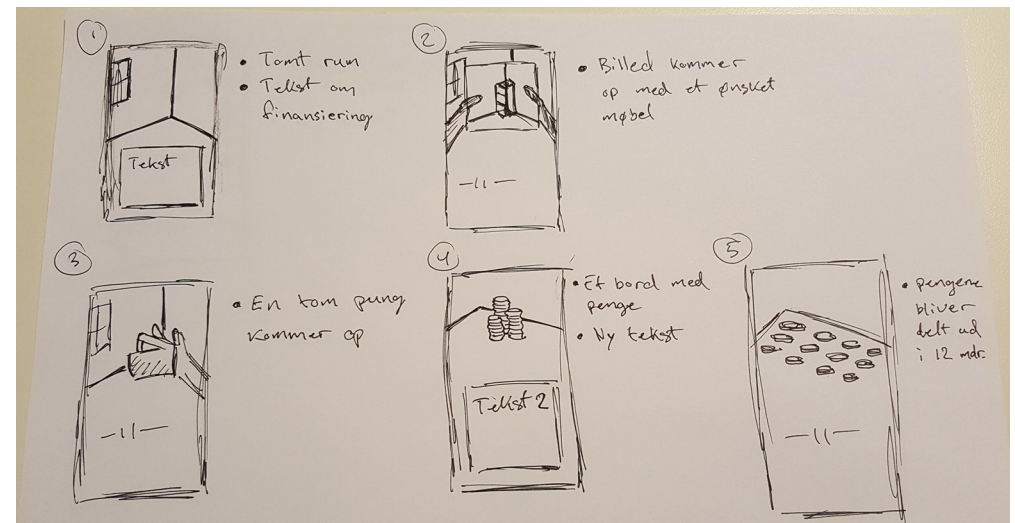 1
• Tomt rum
• Tekst om
finansiering
Tekst
2
• Billed kommer
op med et ønsket
møbel
—11—
3
• En tom pung
kommer op
—11—
4
• Et bord med
penge
• Ny tekst
Tekst 2
5
• pengene
bliver
delt ud
i 12 mdr.
—11—